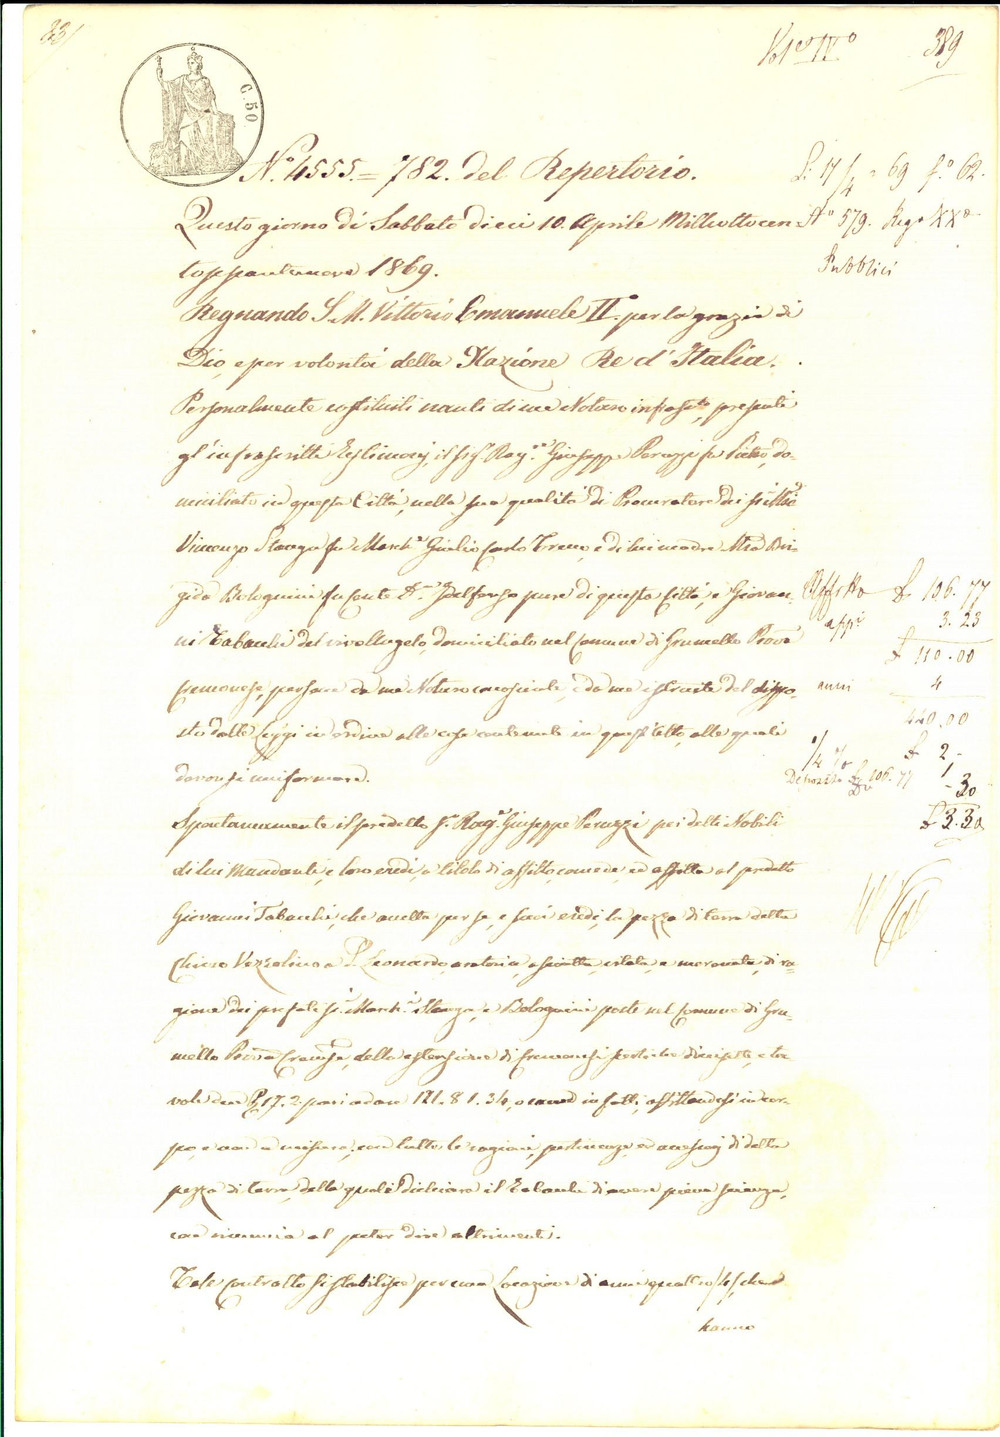 Vol. IV°
389
C. 50
N.° 4555.=782. del Repertorio.
Questo giorno di Sabbato dieci 10. Aprile Milleottocen-
tosessantanove 1869.
Regnando S. M. Vittorio Emanuele II° per la grazia di
Dio, e per volontà della Nazione Re d'Italia.
Personalmente costituiti nanti di me Notaro infrasc.to, presenti
gl'infrascritti Testimonj, il Sig.r Rag.re Giuseppe Perazzi fu Pietro, do-
miciliato in questa Città, nella sua qualità di Procuratore dei
Vincenzo Stanga fu March.e Giulio Carlo e di lui madre M.a Bri-
gida Bolognini fu Conte Ildefonso pure di questa Città, e Giovan-
ni Tabacchi del vivo Angelo, domiciliato nel Comune di Grumello Prov.a
Cremonese, persone da me Notaro conosciute, e da me istruite del dispo-
sto dalle Leggi in ordine alle cose contenute in quest'atto, alle quali
devonsi uniformare.
Spontaneamente il predetto S.r Rag.e Giuseppe Perazzi pei detti Nobili
di lui Mandanti, e loro eredi, a titolo di affitto, concede, ed affitta al predetto
Giovanni Tabacchi, che accetta per se, e suoi eredi, la pezza di terra detta
Chioso Vezzolino e S. Leonardo, aratoria, e moronata, di ra-
gione dei prefati S.i March.i Stanga, e Bolognini posta nel Comune di Gru-
mello Prov.a Cremon.se, della estensione di Cremonesi pertiche diciisette, e ta-
vole due P. 17. 2. pari ad are 121. 8 1. 34, o come in fatti, affittandosi in cor-
po, e non a misura, con tutte le ragioni, pertinenze, ed accessioni di detta
pezza di terra, della quale dichiara il Tabacchi di avere piena scienza,
con rinuncia al poter dire altrimenti.
Tale contratto si stabilisce per una Locazione di anni quattro /4/, che
hanno
L. 17/4 = 69 f.° 62.
N° 579. Reg° XX°
Pubblici
Affitto L. 106. 77
app.i 3. 23
L. 110. 00
anni 4
440. 00
1/4 % L. 2.
Deposito L. 106. 77 1
- 30
L. 3. 30